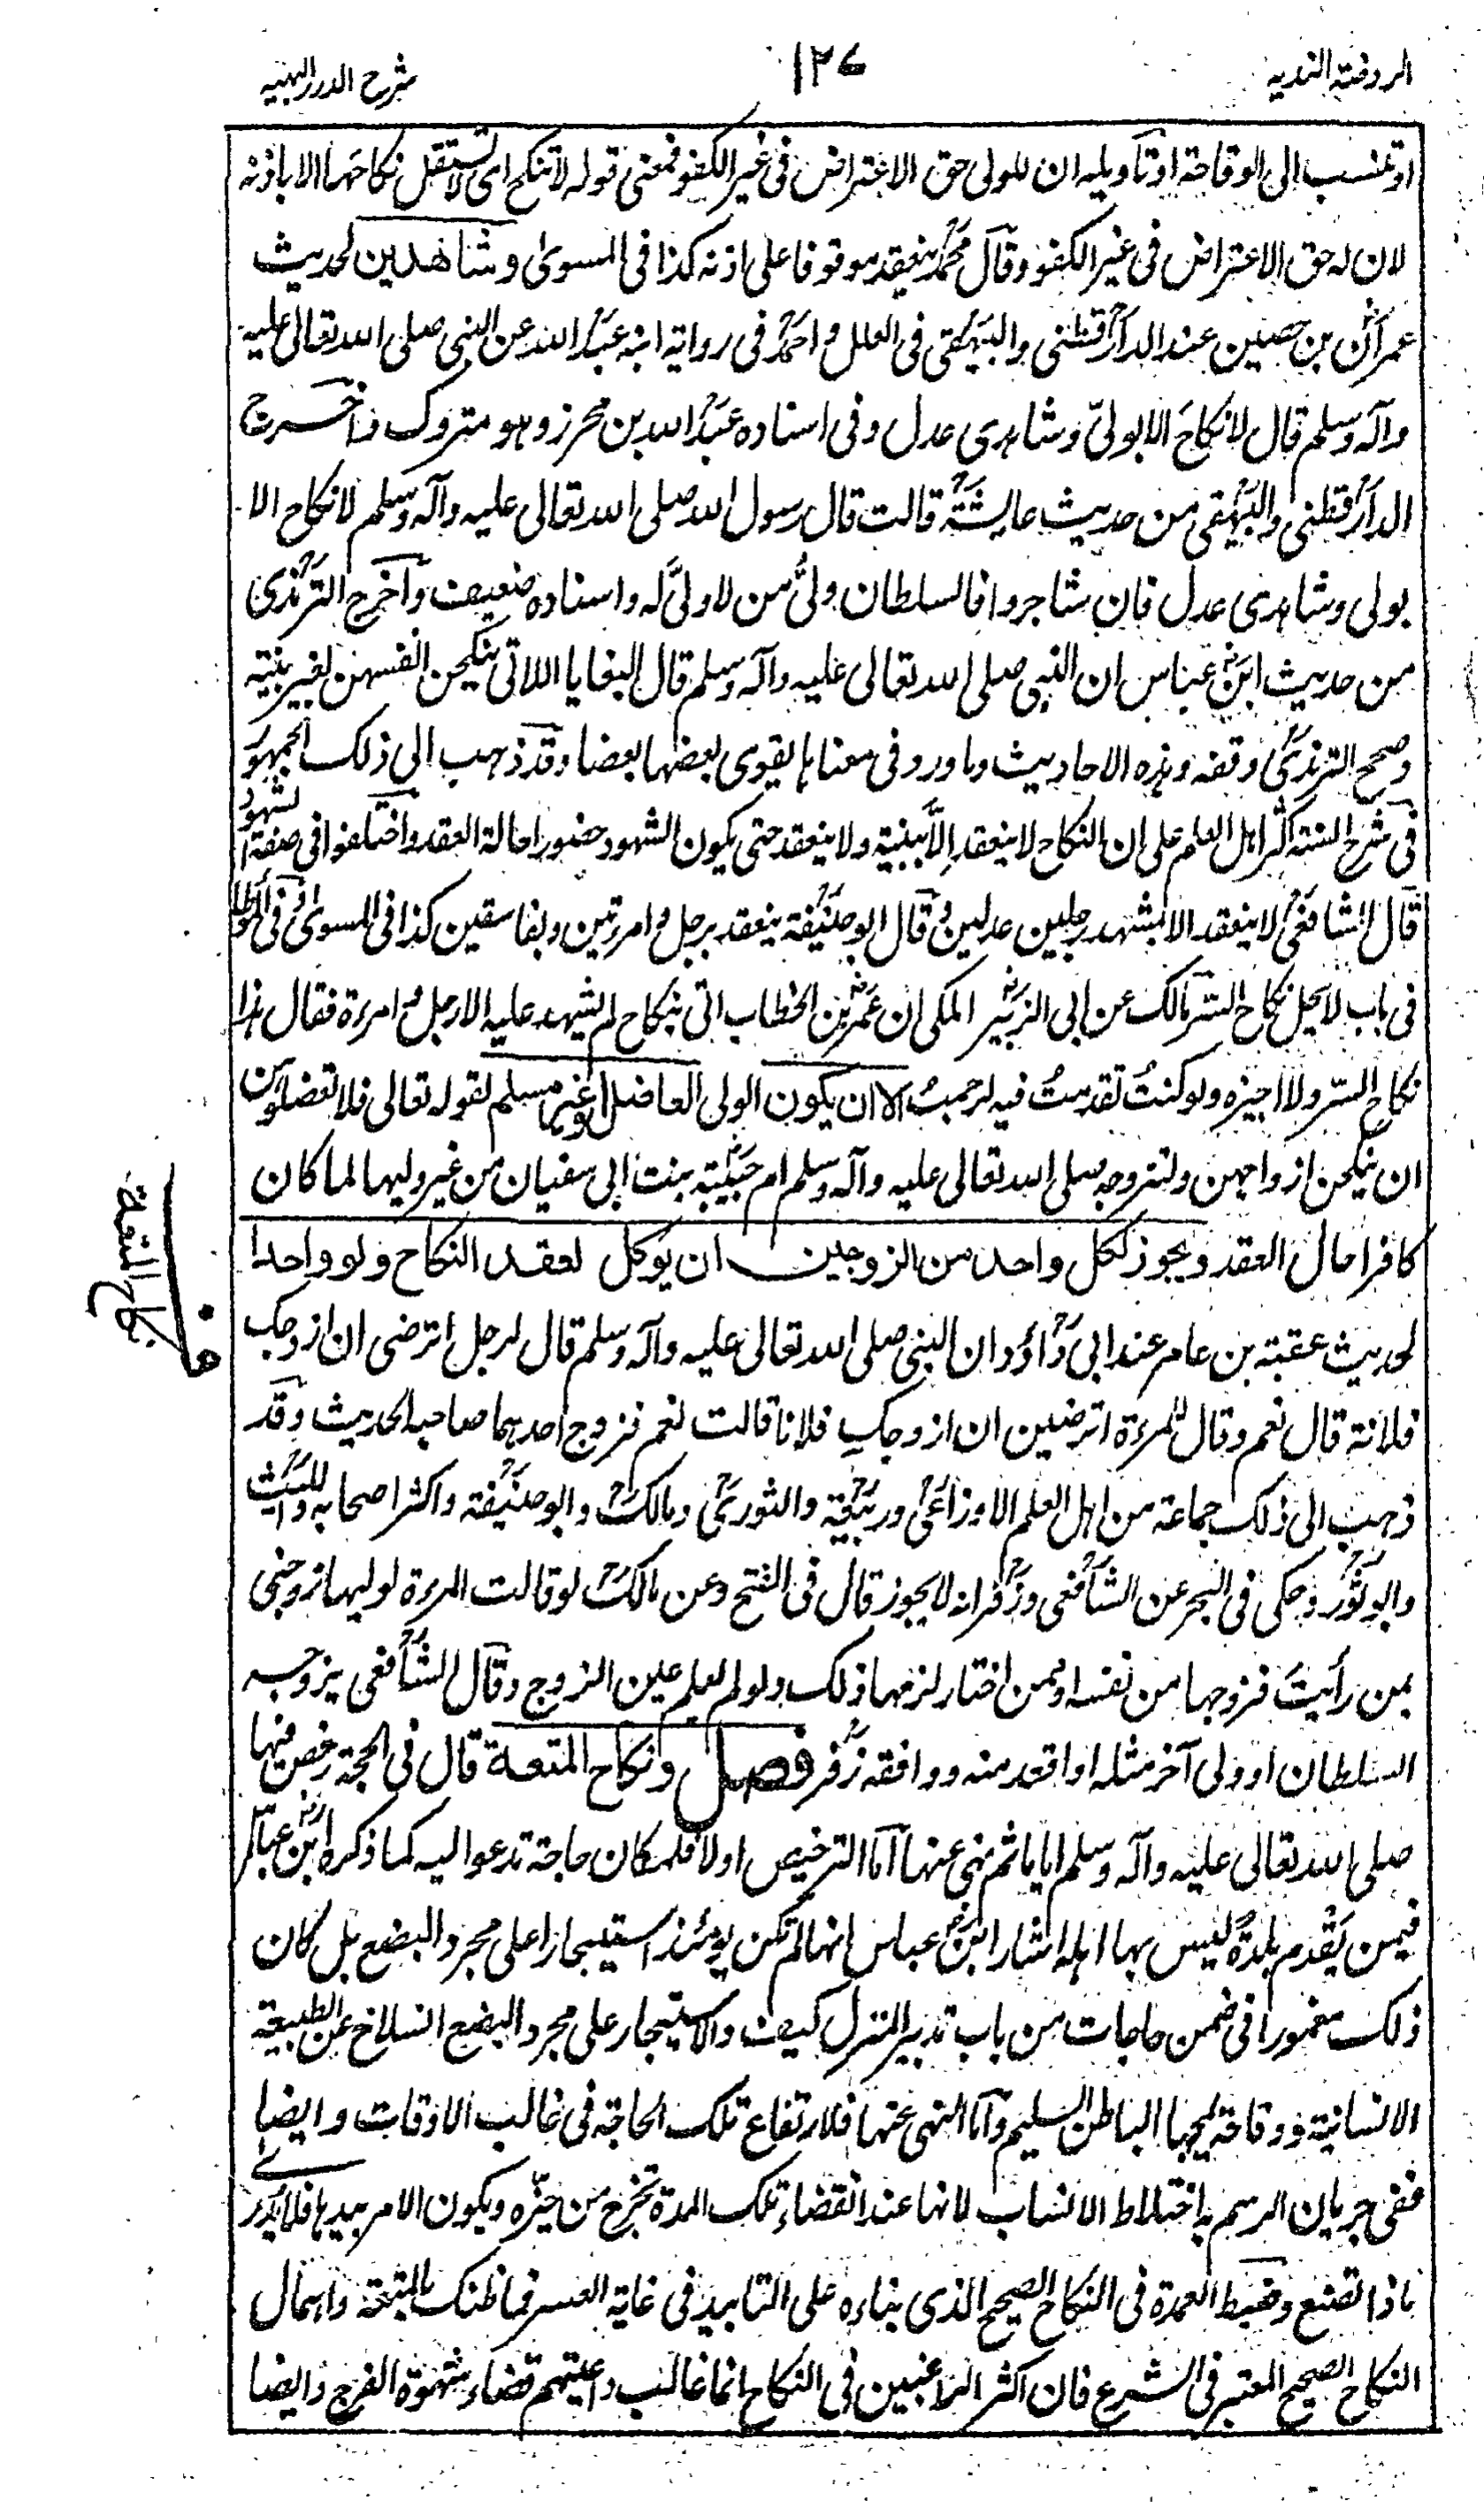 الروضة الندية
١٢٧
شرح الدرر البهية
او تنسب الى الوقاحة او تاويله ان للولى حق الاعتراض فى غير الكفو فمعنى قوله لا تنكح اى لا تستقل نكاحها الا باذنه
لان له حق الاعتراض فى غير الكفو وقال محمد ينعقد موقوفا على اذنه كذا فى المسوى وشاهدين لحديث
عمران بن حصين عند الدارقطنى والبيهقى فى العلل واحمد فى رواية ابنه عبد الله عن النبى صلى الله تعالى عليه
وآله وسلم قال لا نكاح الا بولىّ وشاهدى عدل وفى اسناده عبد الله بن محرز وهو متروك واخرج
الدارقطنى والبيهقى من حديث عايشة قالت قال رسول الله صلى الله تعالى عليه وآله وسلم لا نكاح الا
بولى وشاهدى عدل فان تشاجروا فالسلطان ولىُّ من لا ولىَّ له واسناده ضعيف وآخرج الترمذى
من حديث ابن عباس ان النبى صلى الله تعالى عليه وآله وسلم قال البغايا اللاتى ينكحن انفسهن لغير بينة
وصحح الترمذى وقفه وهذه الاحاديث وما ورد فى معناها يقوى بعضها بعضا وقد ذهب الى ذلك الجمهور
فى شرح السنة اكثر اهل العلم على ان النكاح لا ينعقد الّا ببينة ولا ينعقد حتى يكون الشهود حضورا حالة العقد واختلفوا فى صفة الشهود
قال الشافعى لا ينعقد الا بمشهد رجلين عدلين وقال ابو حنيفة ينعقد برجل وامرءتين وبفاسقين كذا فى المسوى وفى الموطا
فى باب لا يحل نكاح السر مالك عن ابى الزبير المكى ان عمر بن الخطاب اتى بنكاح لم يشهد عليه الا رجل وامرءة فقال هذا
نكاح السّر ولا اجيزه ولو كنتُ تقدمتُ فيه لرجمتُ الا ان يكون الولى العاضل او غير مسلم لقوله تعالى فلا تعضلوهن
ان ينكحن ازواجهن ولتزوجه صلى الله تعالى عليه وآله وسلم ام حبيبة بنت ابى سفيان من غير وليها لما كان
كافرا حال العقد ويجوز لكل واحد من الزوجين ان يوكل لعقد النكاح ولو واحدا
لحديث عقبة بن عامر عند ابى داؤد ان النبى صلى الله تعالى عليه وآله وسلم قال لرجل اترضى ان ازوجك
فلانة قال نعم وقال للمرءة اترضين ان ازوجكِ فلانا قالت نعم فزوج احدهما صاحبه الحديث وقد
ذهب الى ذلك جماعة من اهل العلم الاوزاعى وربيعة والثورى ومالك وابو حنيفة واكثر اصحابه والليث
وابو ثور وحكى فى البحر عن الشافعى وزفر انه لا يجوز قال فى الفتح وعن مالك لو قالت المرءة لوليها زوجنى
بمن رأيتَ فزوجها من نفسه او ممن اختار لزمها ذلك ولو لم يعلم عين الزوج وقال الشافعى يزوجه
السلطان او ولى آخر مثله او اقعد منه ووافقه زفر فصل ونكاح المتعة قال فى الحجة رخص فيها
صلى الله تعالى عليه وآله وسلم اياما ثم نهى عنها آما الترخيص اولا فلمكان حاجة تدعو اليه كما ذكره ابن عباس
فيمن يَقْدم بلدةً ليس بها اهله اشار ابن عباس انها لم تكن يومئذ استيجارا على مجرد البضع بل كان
ذلك مغمورا فى ضمن حاجات من باب تدبير المنزل كيف والاستيجار على مجرد البضع انسلاخ عن الطبيعة
الانسانية ووقاحة يمجها الباطن السليم وآما النهى عنها فلارتفاع تلك الحاجة فى غالب الاوقات وايضا
ففى جريان الرسم به اختلاط الانساب لانها عند انقضاء تلك المدة تخرج من حيّزه ويكون الامر بيدها فلا يُدرى
ماذا تصنع وضبط العدة فى النكاح الصحيح الذى بناءه على التابيد فى غاية العسر فما ظنك بالمتعة واهمال
النكاح الصحيح المعتبر فى الشرع فان اكثر الراغبين فى النكاح انما غالب داعيتهم قضاء شهوة الفرج وايضا
ف نكاح المتعة